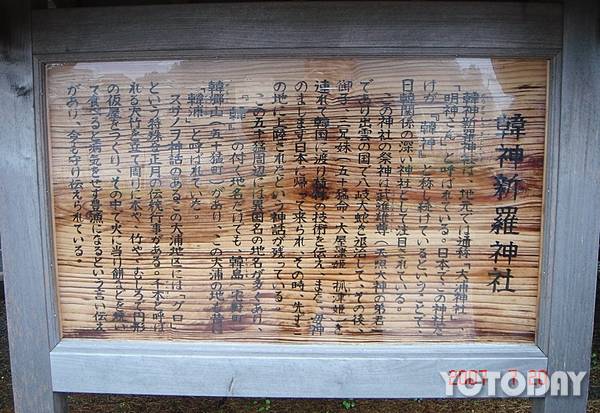 韓神新羅神社
韓神新羅神社は、地元では通称「大浦神社」
「明神さん」と呼ばれている。日本でこの神社だ
けが「韓神」と称し続けているということで、
日韓関係の深い神社として注目されている。
この神社の祭神は武進雄尊(天照大神の弟君)
であり出雲の国で八岐大蛇を退治して、その後、
御子、三兄妹(五十猛命 大屋津姫 抓津姫)を
連れて韓国に渡り 技術を伝え、また 
のまします日本に帰って来られ、その時、先ず
の地に上陸されたという神話が残っている。
この五十猛周辺には異国名の地名が多くあり、
「韓」の付く地名だけでも、韓島(宅野町)
韓郷山(五十猛町)があり、この大浦の地名も
「韓浦」と呼ばれていた。
スサノヲ神話のあるこの大浦地区には「グロ」
という特殊な正月の伝統行事がある。千木と呼ば
れる大竹を立て周りに木や、竹や、むしろで円形
の仮屋をつくり、その中で火に当り餅などを焼い
て食べると病気をせず無病になるという言い伝え
があり、今も守り伝えられている。
2007 7 20
YOTODAY